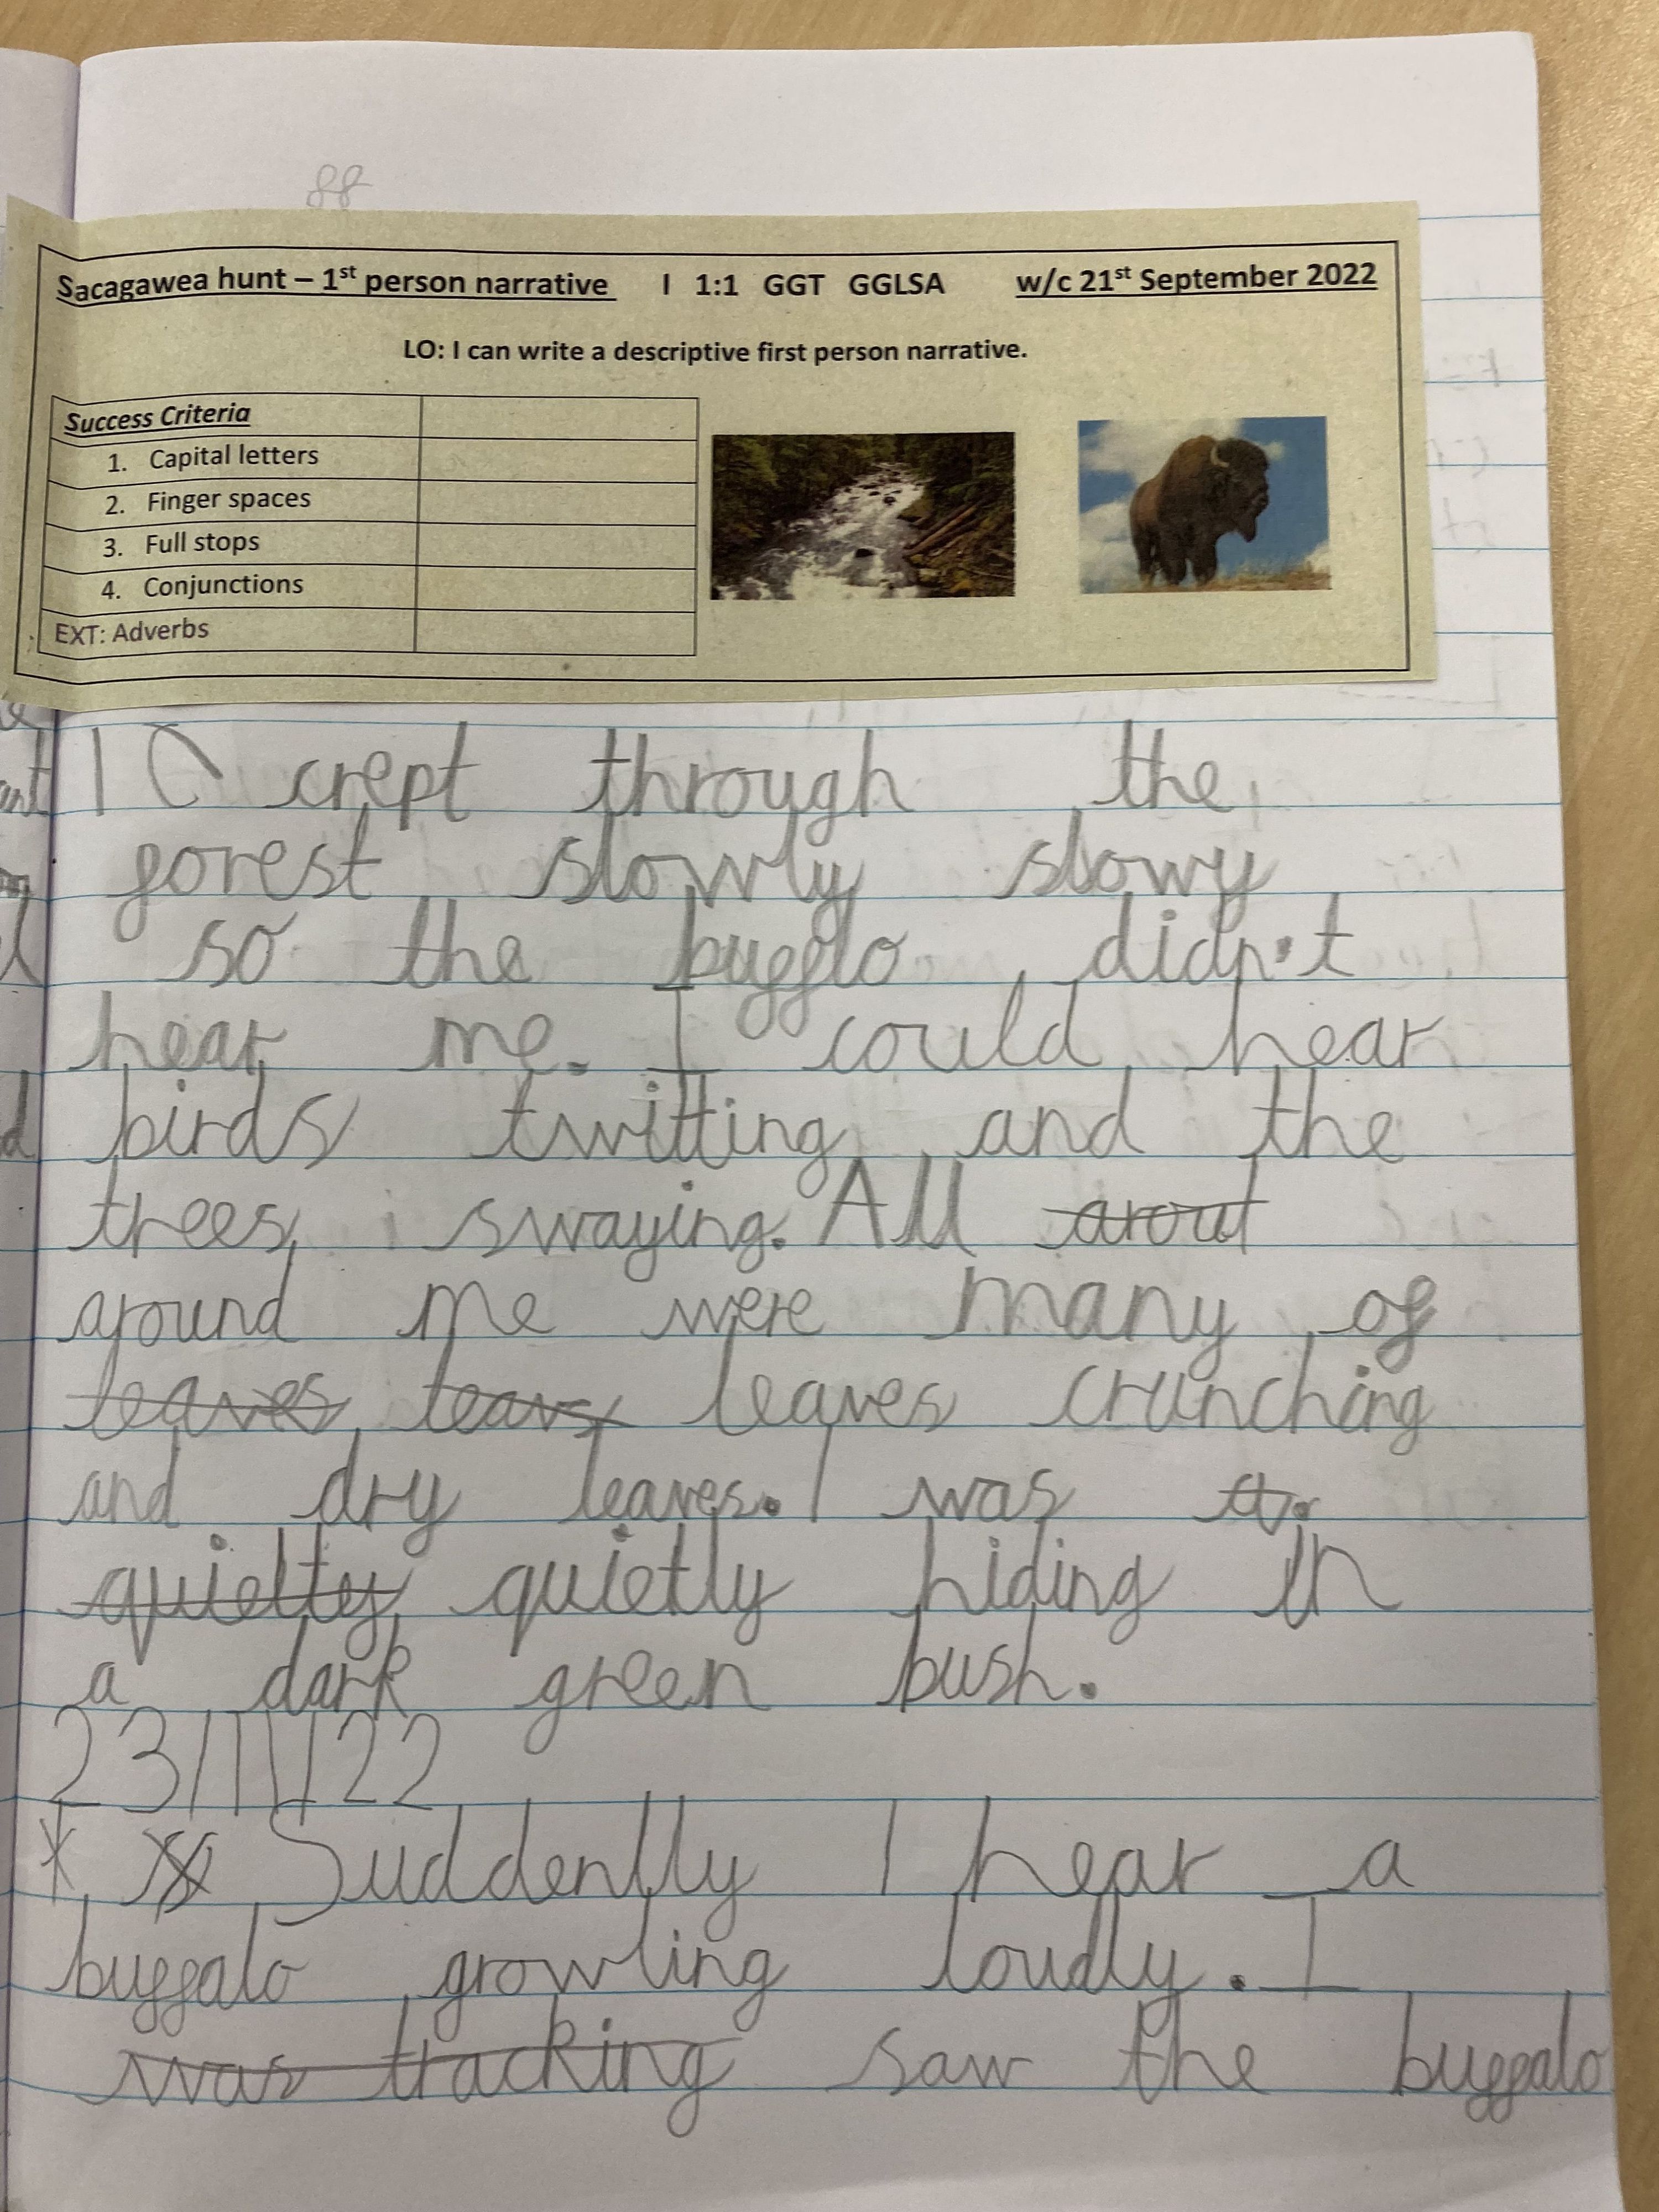 88
Sacagawea hunt – 1st person narrative I 1:1 GGT GGLSA w/c 21st September 2022
LO: I can write a descriptive first person narrative.
Success Criteria
1. Capital letters
2. Finger spaces
3. Full stops
4. Conjunctions
EXT: Adverbs
I crept through the
forest slowly slowy
so the bufflo didn't
hear me. I could hear
birds twitting and the
trees swaying. All arout
around me were many of
leaves leavs leaves crunching
and dry leaves. I was
quieltey quietly hiding in
a dark green bush.
23/11/22
* Suddenlly I hear a
buffalo growling loudly. I
was tracking saw the buffalo